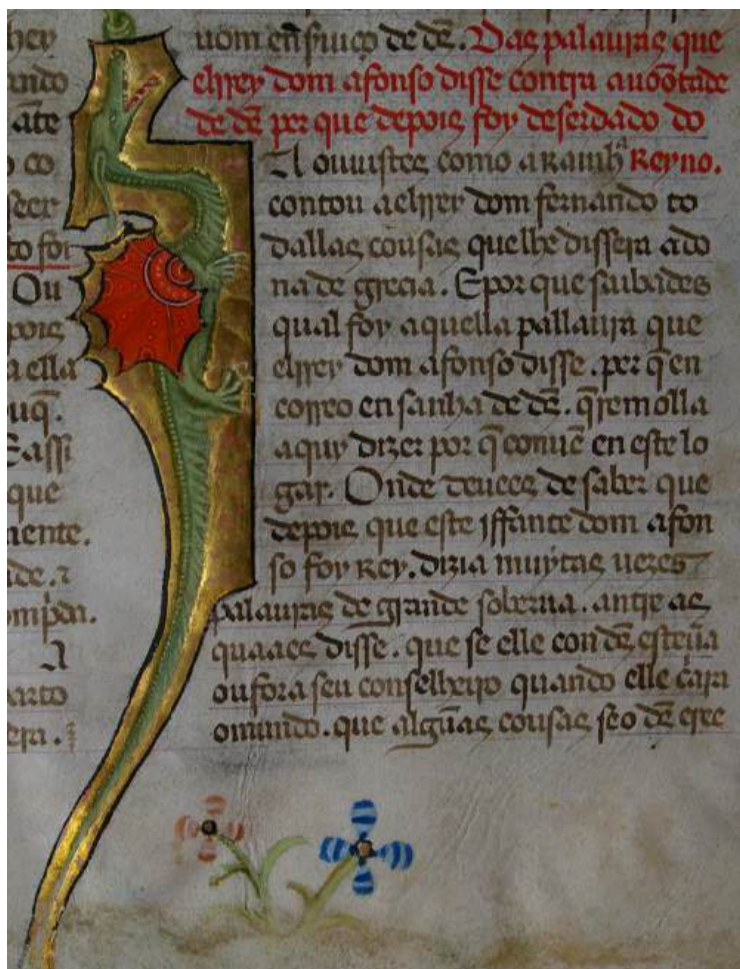 hey
ando
ate
o co
seer
to foi
Ou
pois
a ella
uq̃.
E assi
que
mente.
de. ⁊
omp̃da.
A
parto
era.
uom en s̃uiço de dẽ. Das palauras que
elrrey dom afonso disse contra auoontade
de dẽ per que depois foy deserdado do
A ouuistes como a Rainhᵃ Reyno.
contou aelrrey dom fernando to
dallas cousas quelhe dissera ado
na de grecia. Epor que saibades
qual foy aquella pallaura que
elrrey dom afonso disse. per q̃ en
correo en sanha de dẽ. q̃remolla
aquy dizer por q̃ conuẽ en este lo
gar. Onde deuees de saber que
depois que este jffante dom afon
so foy Rey. dizia muytas uezes
palauras de grande soberua. antre as
quaaes disse. que se elle con dẽ esteũa
oufora seu conselheyro quando elle c̃ara
omundo. que algũas cousas seo dẽ cree